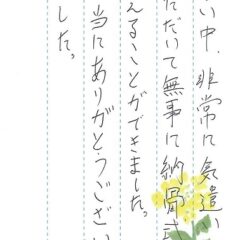 い中、非常に気遣い
ただいて無事に納骨式
えることができました。
当にありがとうござい
した。